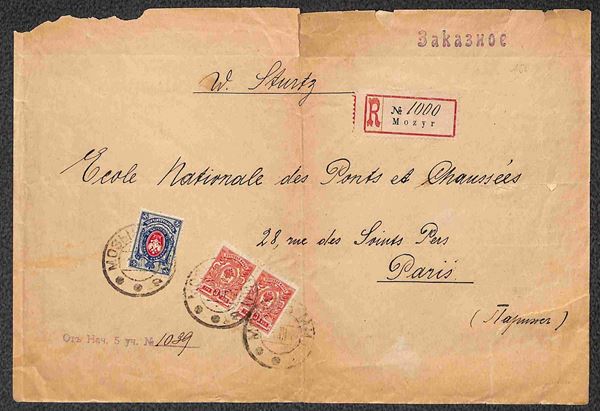 Заказное
W. Sturtz
R № 1000
Mozyr
Ecole Nationale des Ponts et Chaussées
28, rue des Saints Pers
Paris.
(Парижъ)
Отъ Нач. 5 уч. № 1039